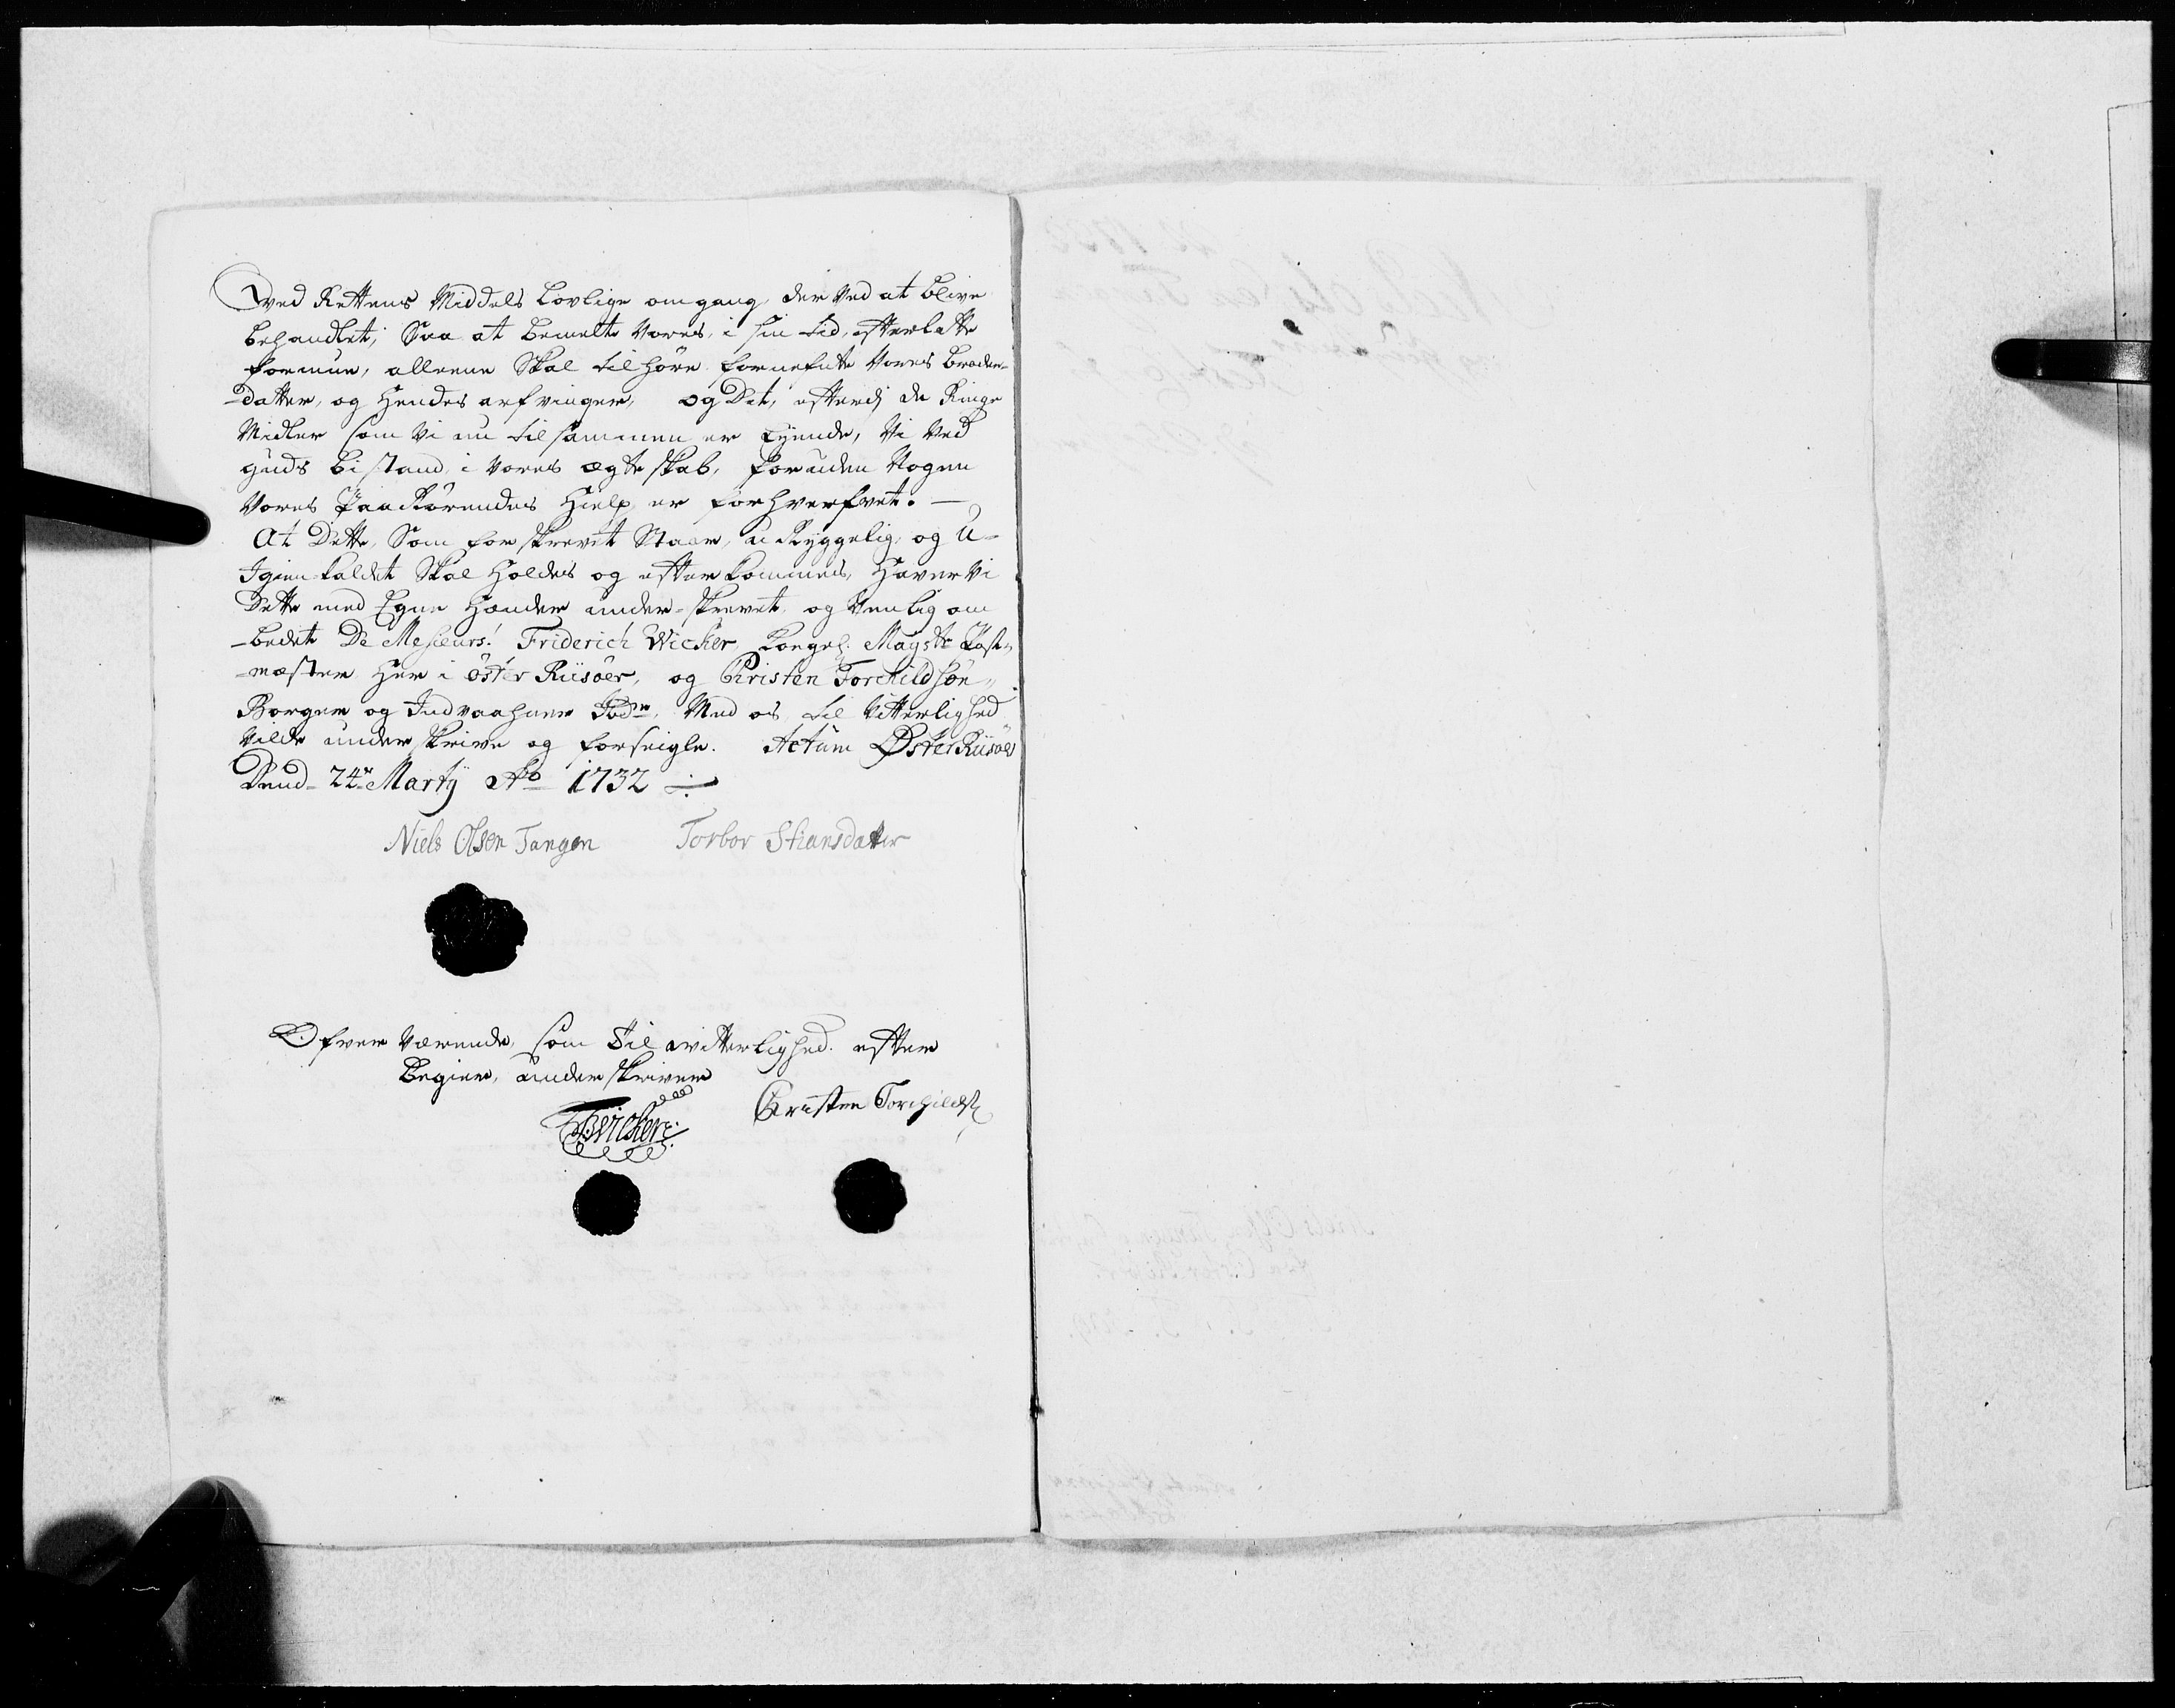 ved Rettens Middels Lovlige omgang, der Ved at blive
behandlet; Saa at bemelte Vores, i sin tid, efterlatte
formue, alleene Skal tilhøre fornefnte Vores broder-
-datter, og Hendes arfvinger, og Det, efterdj de Ringe
Midler som Vi nu tilsammen er Eyende, Vi Ved
guds bistand, i Vores ægteskab, foruden Nogen
Vores Paarørendes Hielp, er forhverfvet. —
At Dette, Som forskrevet Staar, u-Ryggelig, og U-
Igien-kaldet Skal Holdes og efterkommes, Haver Vi
Dette med Egne Hænder under-skrevet, og Venlig om
-bedet De Mesieurs. Friderich Wicker, Kongel. Mayste Post-
-mæster Her i Öster Riisöer, og Christen Torchildsøn,
Borger og Indvaahner Ibdm, Med os til Vitterlighed
Vilde underskrive og forseigle. Actum Øster Riisöer
Dend 24de Martij Ao 1732
Niels Olsen Tangen Torbor Stiansdatter
Ofververende, som Til witterlighed efter
Begier, underskriver
FWicker. Christen Torchilds.